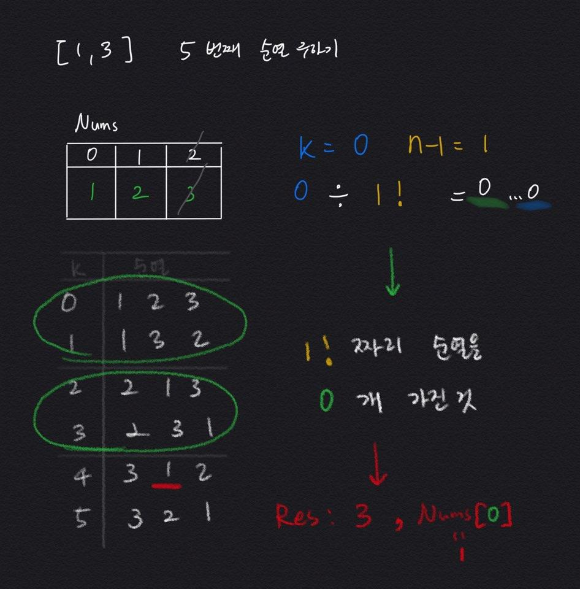 [1,3] 5 번째 순열 구하기
Nums
0 1 2
1 2 3
k = 0 n-1 = 1
0 ÷ 1! = 0 ... 0
k 순열
0 1 2 3
1 1 3 2
2 2 1 3
3 2 3 1
4 3 1 2
5 3 2 1
1! 짜리 순열을
0 개 가진 것
Res: 3 , Nums[0]
"
1